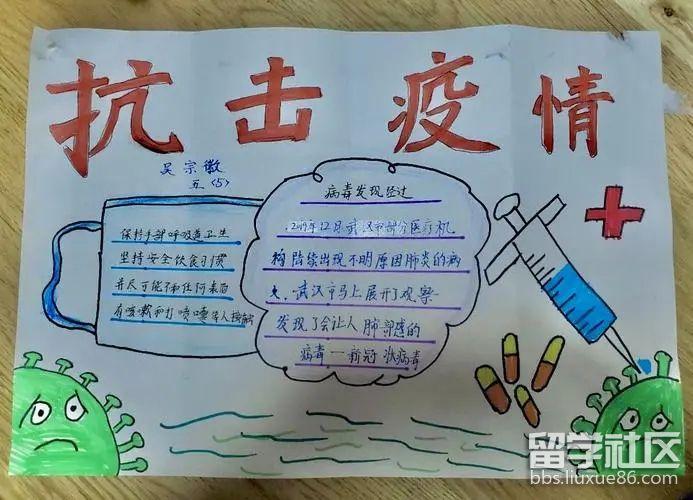 抗击疫情
吴宗徽
五〈5〉
保持手部呼吸道卫生
坚持安全饮食习惯
并尽可能不和任何表面
有咳嗽和打喷嚏等人接触
病毒发现经过
2019年12月武汉市部分医疗机
构陆续出现不明原因肺炎的病
人，武汉市马上展开了观察
发现了会让人肺部感的
病毒一新冠状病毒
留学社区
bbs.liuxue86.com